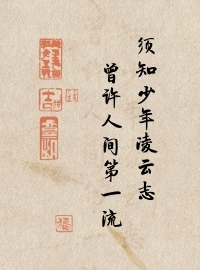 须知少年凌云志
曾许人间第一流